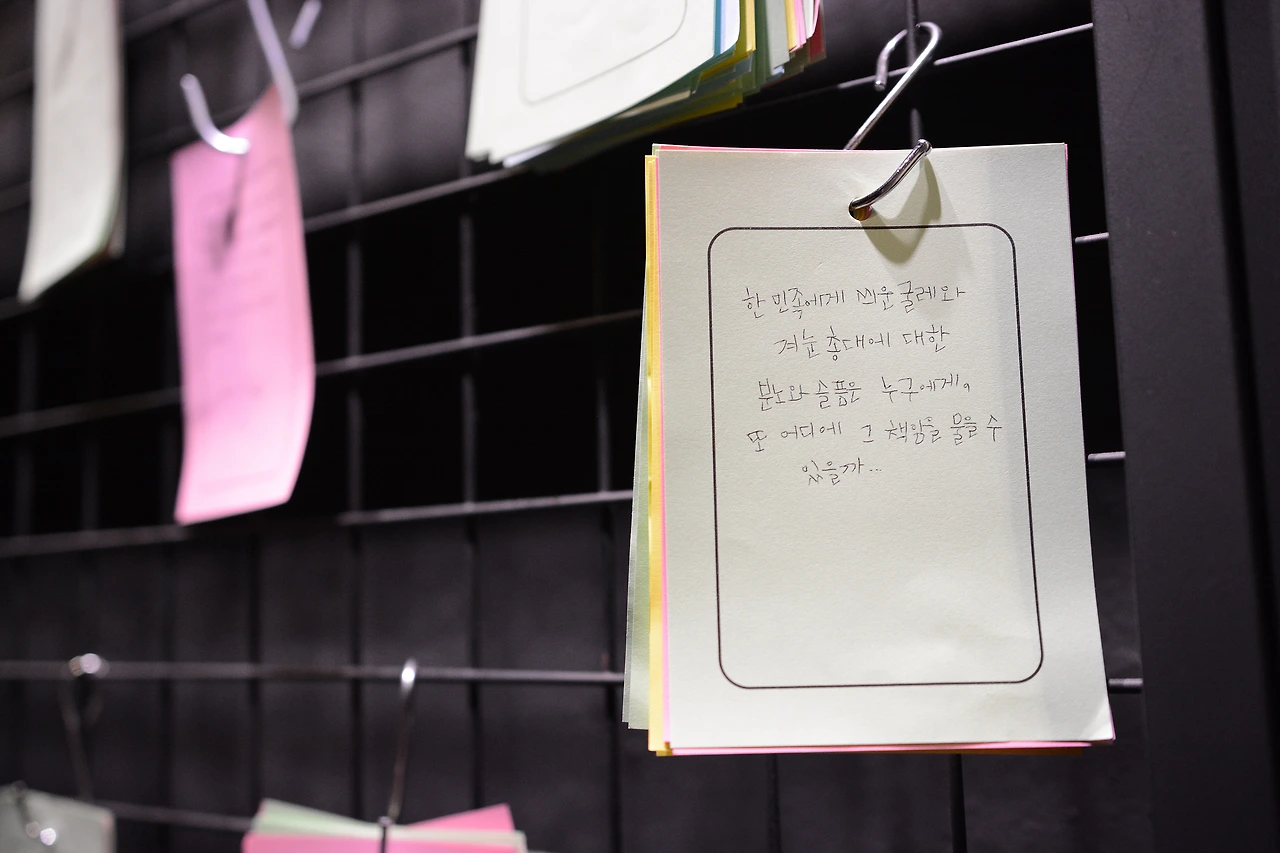 한 민족에게 씌운 굴레와
겨눈 총대에 대한
분노와 슬픔은 누구에게,
또 어디에 그 책임을 물을 수
있을까...